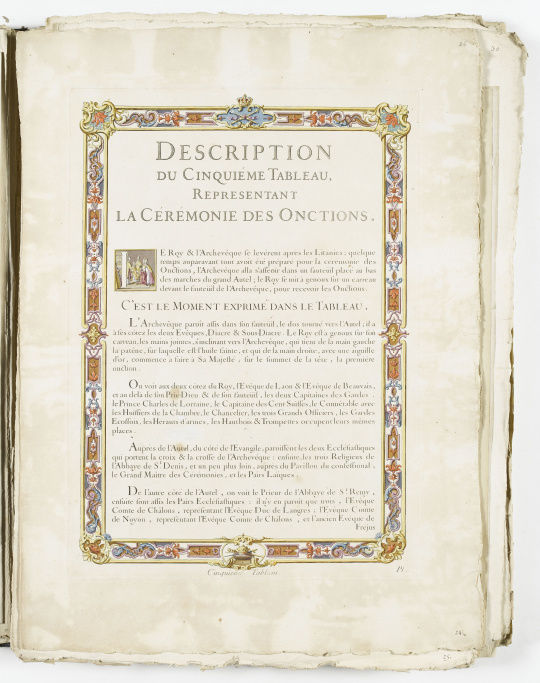 DESCRIPTION
DU CINQUIÉME TABLEAU,
REPRESENTANT
LA CÉRÉMONIE DES ONCTIONS.
E Roy & l'Archevêque se leverent après les Litanies; quelque
temps auparavant tout avoit été préparé pour la cérémonie des
Onctions, l'Archevêque alla s'asseoir dans un fauteüil placé au bas
des marches du grand Autel; le Roy se mit à genoux sur un carreau
devant le fauteüil de l'Archevêque, pour recevoir les Onctions.
C'EST LE MOMENT EXPRIMÉ DANS LE TABLEAU.
L'Archevêque paroît assis dans son fauteüil, le dos tourné vers l'Autel; il a
à ses côtez les deux Evêques, Diacre & Sous-Diacre. Le Roy est à genoux sur son
carreau, les mains jointes, s'inclinant vers l'Archevêque, qui tient de la main gauche
la patène, sur laquelle est l'huile sainte, et qui de la main droite, avec une aiguille
d'or, commence à faire à Sa Majesté, sur le sommet de la tête, la premiere
onction.
On voit aux deux côtez du Roy, l'Evêque de Laon & l'Evêque de Beauvais,
et au delà de son Prie-Dieu & de son fauteüil, les deux Capitaines des Gardes,
le Prince Charles de Lorraine, le Capitaine des Cent Suisses, le Connétable avec
les Huissiers de la Chambre, le Chancelier, les trois Grands Officiers, les Gardes
Ecossois, les Heraux d'armes, les Hautbois & Trompettes occupent leurs mêmes
places.
Auprès de l'Autel, du côté de l'Evangile, paroissent les deux Ecclésiastiques
qui portent la croix & la crosse de l'Archevêque: ensuite, les trois Religieux de
l'Abbaye de St. Denis, et un peu plus loin, auprès du Pavillon du confessional,
le Grand Maître des Cérémonies, et les Pairs Laïques.
De l'autre côté de l'Autel, on voit le Prieur de l'Abbaye de St. Remy,
ensuite sont assis les Pairs Ecclésiastiques: il n'y en paroît que trois, l'Evêque
Comte de Châlons, représentant l'Evêque Duc de Langres; l'Evêque Comte
de Noyon, représentant l'Evêque Comte de Châlons, et l'ancien Evêque de
Fréjus
Cinquième Tableau